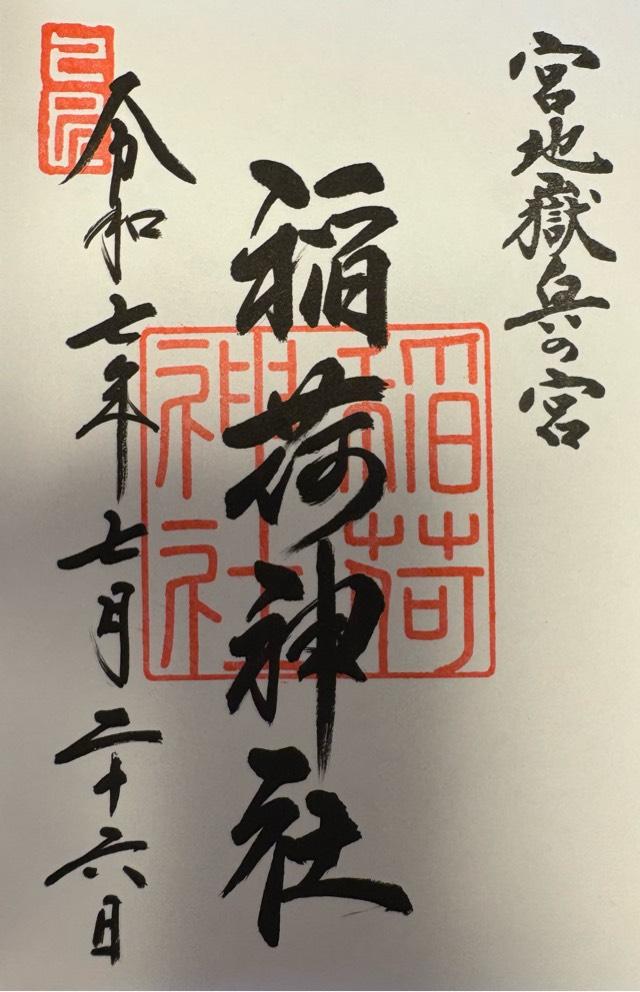 宮地嶽奥の宮
稲荷神社
稲荷
神社
令和七年七月二十六日